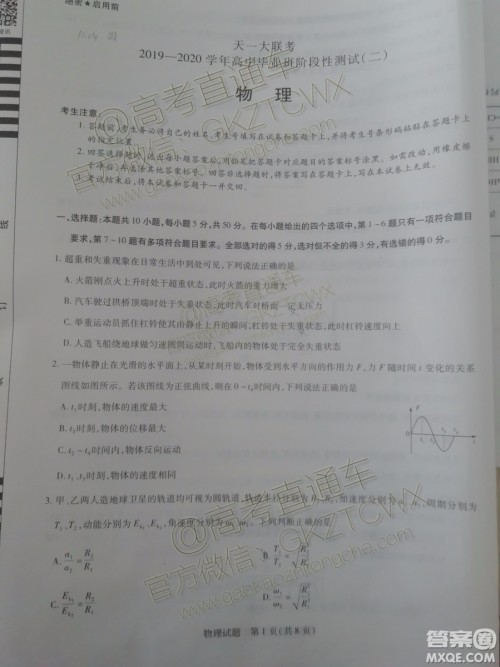 绝密★启用前
天一大联考
2019—2020学年高中毕业班阶段性测试(二)
物 理
考生注意:
1. 答题前,考生务必将自己的姓名、考生号填写在试卷和答题卡上,并将考生号条形码粘贴在答题卡上
的指定位置。
2. 回答选择题时,选出每小题答案后,用铅笔把答题卡对应题目的答案标号涂黑。如需改动,用橡皮擦
3. 考试结束后,将本试卷和答题卡一并交回。
一、选择题:本题共10小题,每小题5分,共50分。在每小题给出的四个选项中,第1~6题只有一项符合题目
要求,第7~10题有多项符合题目要求。全部选对的得5分,选对但不全的得3分,有选错的得0分。
1. 超重和失重现象在日常生活中处处可见,下列说法正确的是
A. 火箭刚点火上升时处于超重状态,此时火箭的重力增大
B. 汽车驶过拱桥顶端时处于失重状态,此时汽车对桥面一定无压力
C. 举重运动员抓杠铃使其由静止上升的瞬间,杠铃处于超重状态
D. 人造飞船绕地球做匀速圆周运动时,飞船内的物体处于完全失重状态
2. 一物体静止在光滑的水平面上,从某时刻开始,物体受到水平方向的作用力F,力F随时间t变化的关系
图如图所示。若该图为正弦曲线,则在0~t₄时刻内,下列说法正确的是
A. t₁时刻,物体的速度最大
B. t₂时刻,物体的位移最大
C. t₂~t₄时间内,物体反向运动
D.
F
t
3. 甲、乙两人造地球卫星的轨道均可视为圆轨道,轨道半径分别为R₁、R₂,
T₁、T₂,动能分别为Eₖ₁、Eₖ₂,角速度分别为ω₁、ω₂。下列判断正确的是
A. a₁/a₂ = R₂/R₁
C. Eₖ₁/Eₖ₂ = R₂/R₁
物理试题 第1页(共8页)
@高考直通车
GKZTCWX
@高考直通车
官方微信:GKZTCWX
gaokaozhitongche.com
答案圈
MXQE.COM